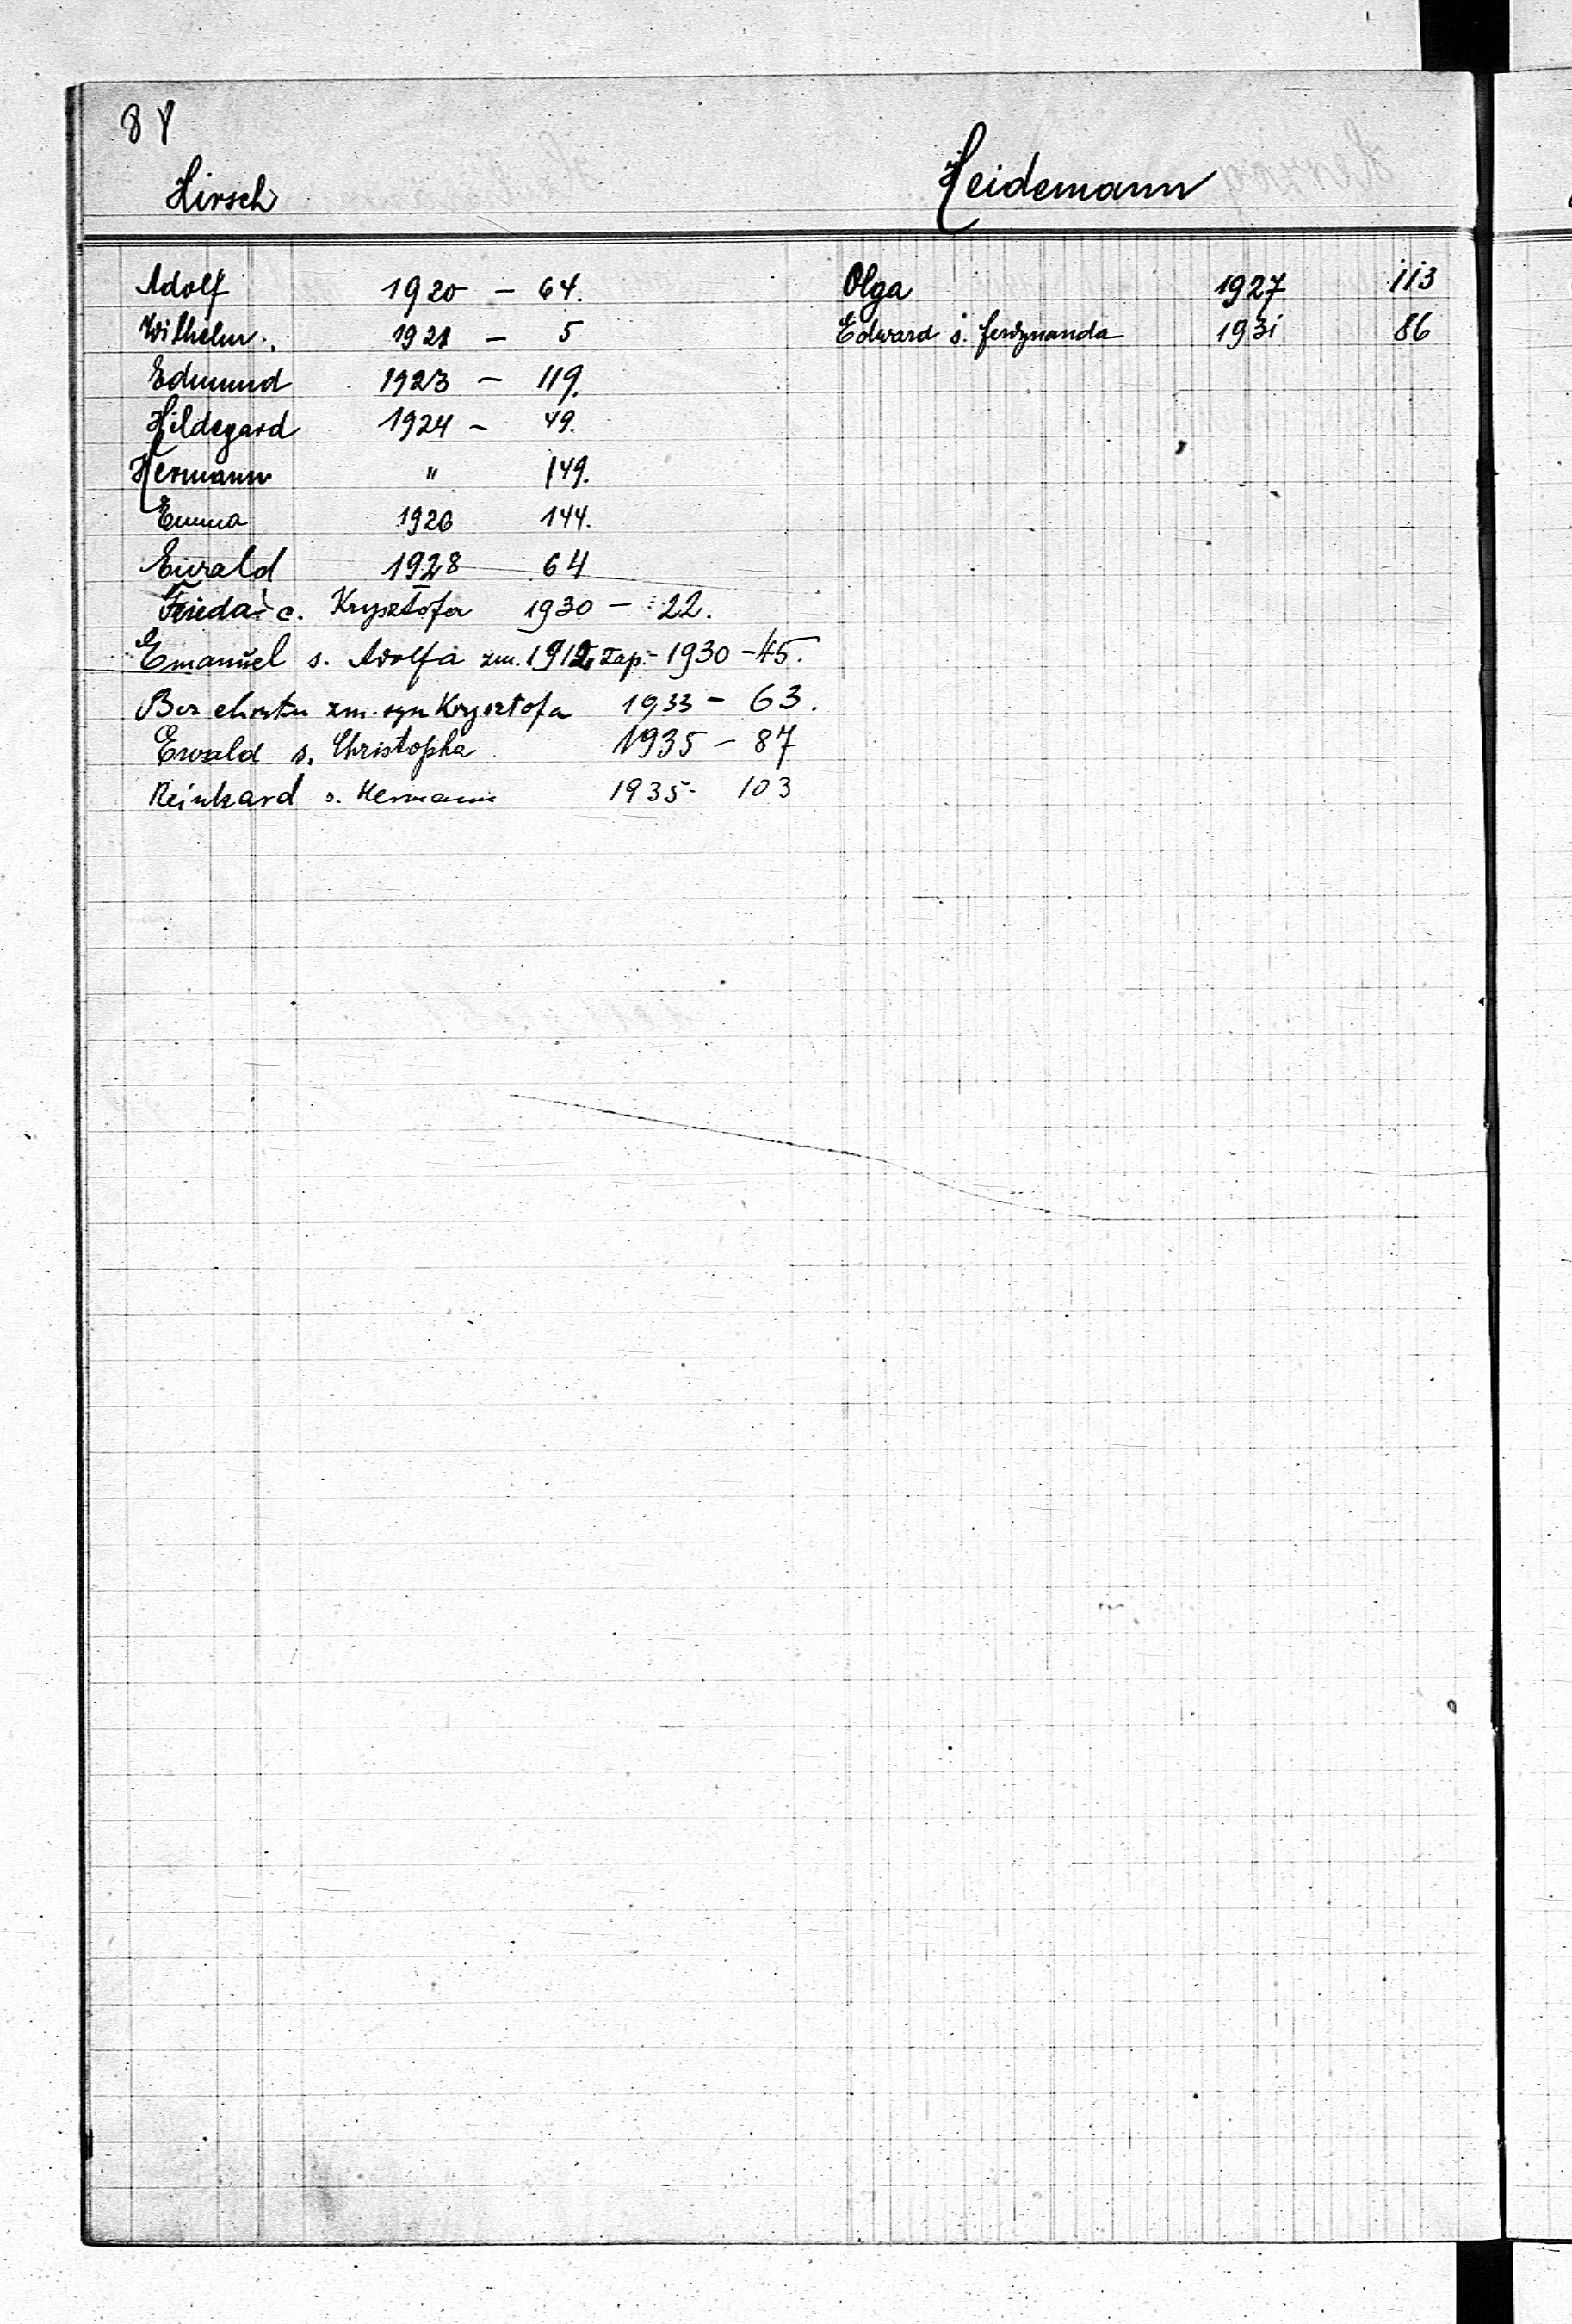 88
Hirsch
Adolf 1920 - 64.
Wilhelm. 1921 - 5
Edmund 1923 - 119.
Hildegard 1924 - 49.
Hermann " 149.
Emma 1926 144.
Ewald 1928 64
Frieda c. Krysztofa 1930 - 22.
Emanuel s. Adolfa zm. 1912, zap. - 1930 - 45.
Bez chrztu zm. syn Krysztofa 1933 - 63.
Ewald s. Christopha 1935 - 87
Reinhard s. Hermann 1935 - 103
Heidemann
Olga 1927 113
Edward s. Ferdynanda 1931 86